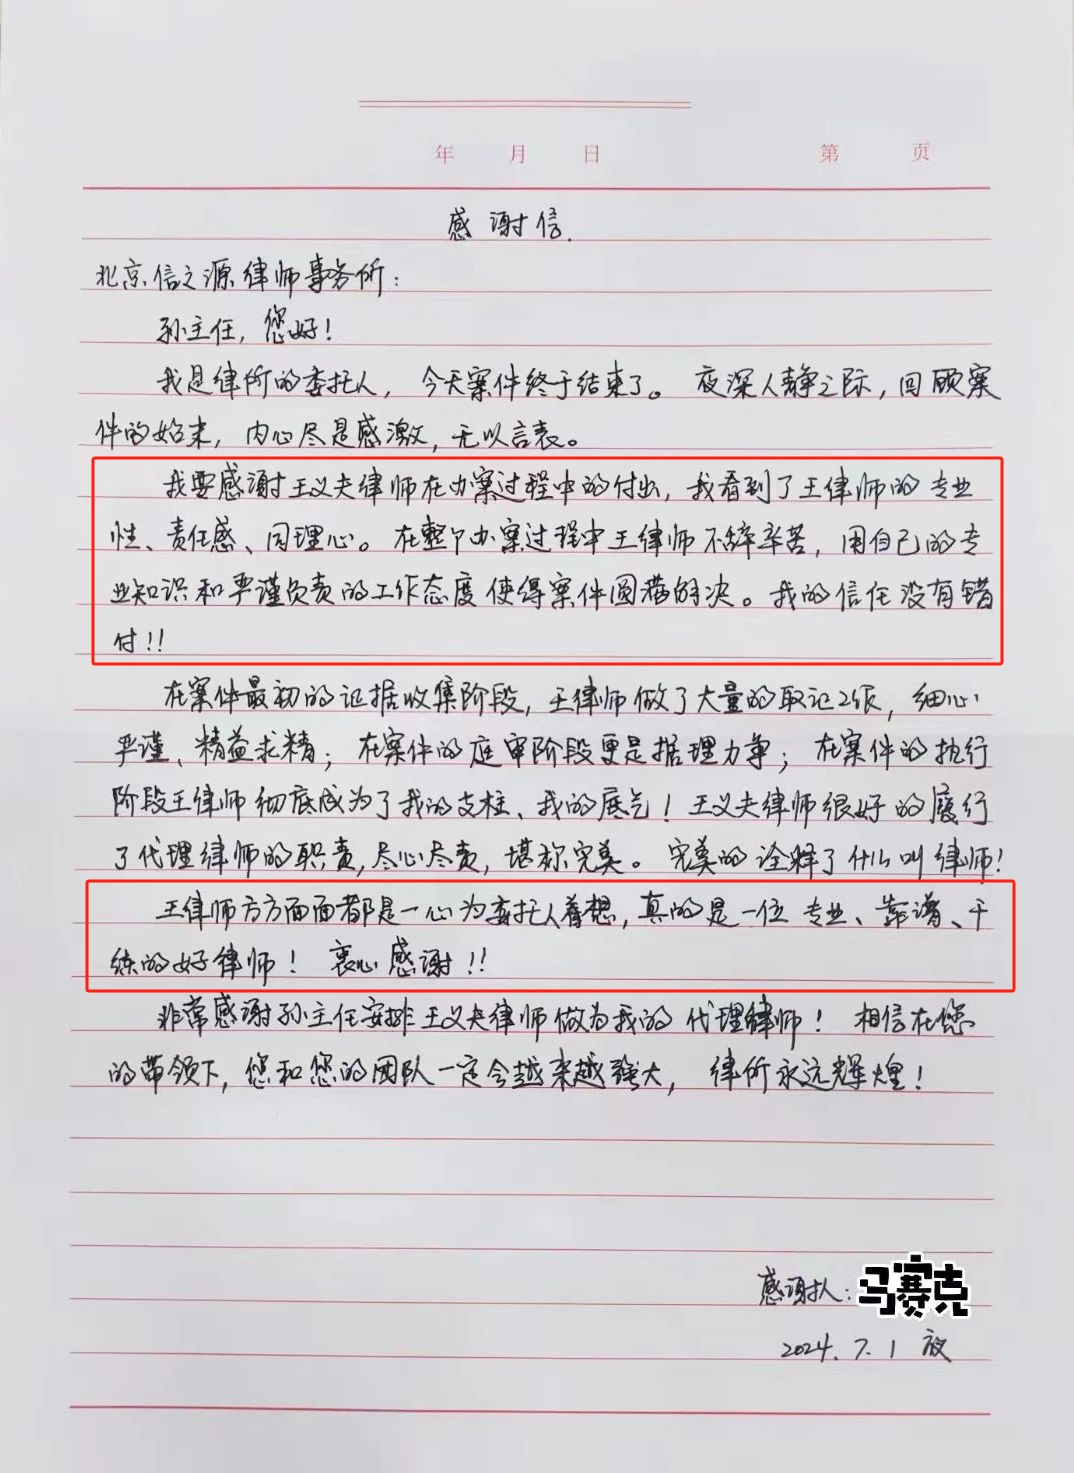 年 月 日 第 页
感谢信.
北京信之源律师事务所：
孙主任，您好！
我是律所的委托人，今天案件终于结束了。夜深人静之际，回顾案
件的始末，内心尽是感激，无以言表。
我要感谢王义夫律师在办案过程中的付出，我看到了王律师的专业
性、责任感、同理心。在整个办案过程中王律师不辞辛苦，用自己的专
业知识和严谨负责的工作态度使得案件圆满解决。我的信任没有错
付！！
在案件最初的证据收集阶段，王律师做了大量的取证工作，细心
严谨、精益求精；在案件的庭审阶段更是据理力争；在案件的执行
阶段王律师彻底成为了我的支柱、我的底气！王义夫律师很好的履行
了代理律师的职责，尽心尽责，堪称完美。完美的诠释了什么叫律师！
王律师方方面面都是一心为委托人着想，真的是一位专业、靠谱、干
练的好律师！衷心感谢！！
非常感谢孙主任安排王义夫律师做为我的代理律师！相信在您
的带领下，您和您的团队一定会越来越强大，律所永远辉煌！
感谢人：马赛克
2024.7.1 夜